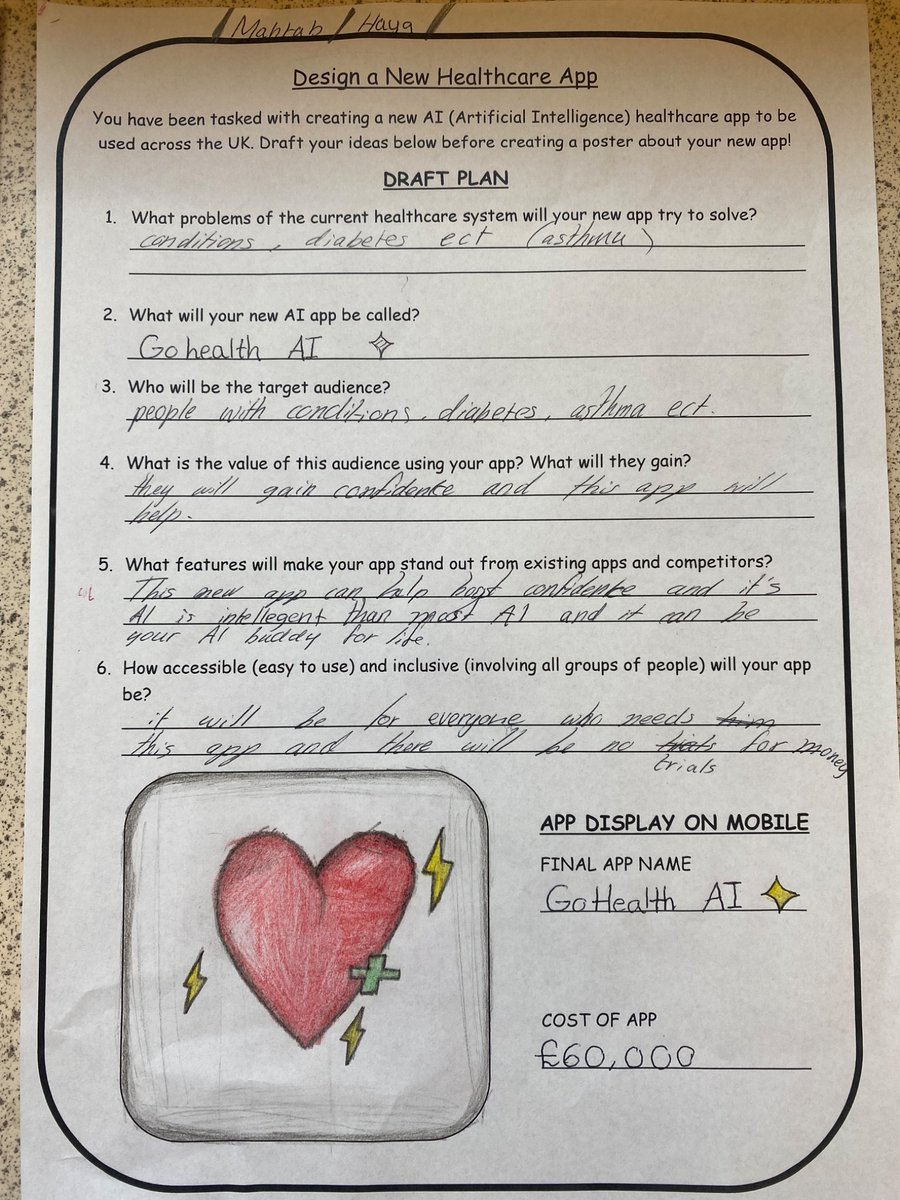 Mahtab / Haya /
Design a New Healthcare App
You have been tasked with creating a new AI (Artificial Intelligence) healthcare app to be
used across the UK. Draft your ideas below before creating a poster about your new app!
DRAFT PLAN
1. What problems of the current healthcare system will your new app try to solve?
conditions, diabetes ect (asthma)
2. What will your new AI app be called?
Go health AI
3. Who will be the target audience?
people with conditions, diabetes, asthma ect.
4. What is the value of this audience using your app? What will they gain?
they will gain confidenke and this app will
help.
5. What features will make your app stand out from existing apps and competitors?
This new app can help bost confidenke and it's
AI is intellegent than most AI and it can be
your AI buddy for life.
6. How accessible (easy to use) and inclusive (involving all groups of people) will your app
be?
it will be for everyone who needs him
this app and there will be no for money
trials
APP DISPLAY ON MOBILE
FINAL APP NAME
GoHealth AI
COST OF APP
£60,000